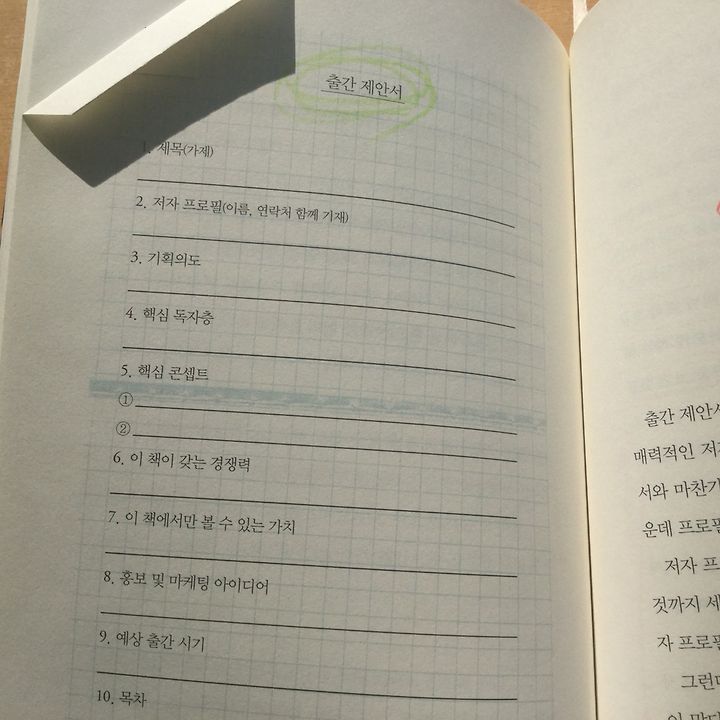 출간 제안서
1. 제목(가제)
2. 저자 프로필(이름, 연락처 함께 기재)
3. 기획의도
4. 핵심 독자층
5. 핵심 콘셉트
①
②
6. 이 책이 갖는 경쟁력
7. 이 책에서만 볼 수 있는 가치
8. 홍보 및 마케팅 아이디어
9. 예상 출간 시기
10. 목차
출간 제안서
매력적인 저
서와 마찬가
운데 프로필
저자 프
것까지 세
자 프로필
그런데